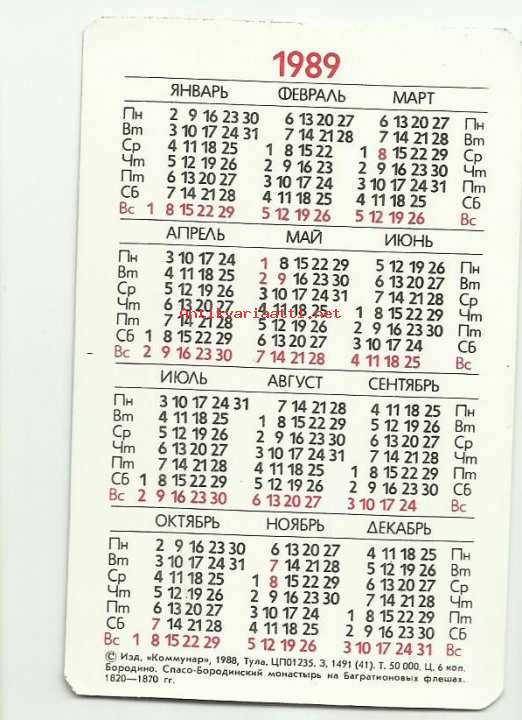 1989
ЯНВАРЬ ФЕВРАЛЬ МАРТ
Пн 2 9 16 23 30 6 13 20 27 6 13 20 27 Пн
Вт 3 10 17 24 31 7 14 21 28 7 14 21 28 Вт
Ср 4 11 18 25 1 8 15 22 1 8 15 22 29 Ср
Чт 5 12 19 26 2 9 16 23 2 9 16 23 30 Чт
Пт 6 13 20 27 3 10 17 24 3 10 17 24 31 Пт
Сб 7 14 21 28 4 11 18 25 4 11 18 25 Сб
Вс 1 8 15 22 29 5 12 19 26 5 12 19 26 Вс
АПРЕЛЬ МАЙ ИЮНЬ
Пн 3 10 17 24 1 8 15 22 29 5 12 19 26 Пн
Вт 4 11 18 25 2 9 16 23 30 6 13 20 27 Вт
Ср 5 12 19 26 3 10 17 24 31 7 14 21 28 Ср
Чт 6 13 20 27 4 11 18 25 1 8 15 22 29 Чт
Antikvariaatti.net
Пт 7 14 21 28 5 12 19 26 2 9 16 23 30 Пт
Сб 1 8 15 22 29 6 13 20 27 3 10 17 24 Сб
Вс 2 9 16 23 30 7 14 21 28 4 11 18 25 Вс
ИЮЛЬ АВГУСТ СЕНТЯБРЬ
Пн 3 10 17 24 31 7 14 21 28 4 11 18 25 Пн
Вт 4 11 18 25 1 8 15 22 29 5 12 19 26 Вт
Ср 5 12 19 26 2 9 16 23 30 6 13 20 27 Ср
Чт 6 13 20 27 3 10 17 24 31 7 14 21 28 Чт
Пт 7 14 21 28 4 11 18 25 1 8 15 22 29 Пт
Сб 1 8 15 22 29 5 12 19 26 2 9 16 23 30 Сб
Вс 2 9 16 23 30 6 13 20 27 3 10 17 24 Вс
ОКТЯБРЬ НОЯБРЬ ДЕКАБРЬ
Пн 2 9 16 23 30 6 13 20 27 4 11 18 25 Пн
Вт 3 10 17 24 31 7 14 21 28 5 12 19 26 Вт
Ср 4 11 18 25 1 8 15 22 29 6 13 20 27 Ср
Чт 5 12 19 26 2 9 16 23 30 7 14 21 28 Чт
Пт 6 13 20 27 3 10 17 24 1 8 15 22 29 Пт
Сб 7 14 21 28 4 11 18 25 2 9 16 23 30 Сб
Вс 1 8 15 22 29 5 12 19 26 3 10 17 24 31 Вс
© Изд. «Коммунар», 1988, Тула. ЦП01235. З. 1491 (41). Т. 50 000. Ц. 6 коп.
Бородино. Спасо-Бородинский монастырь на Багратионовых флешах.
1820—1870 гг.